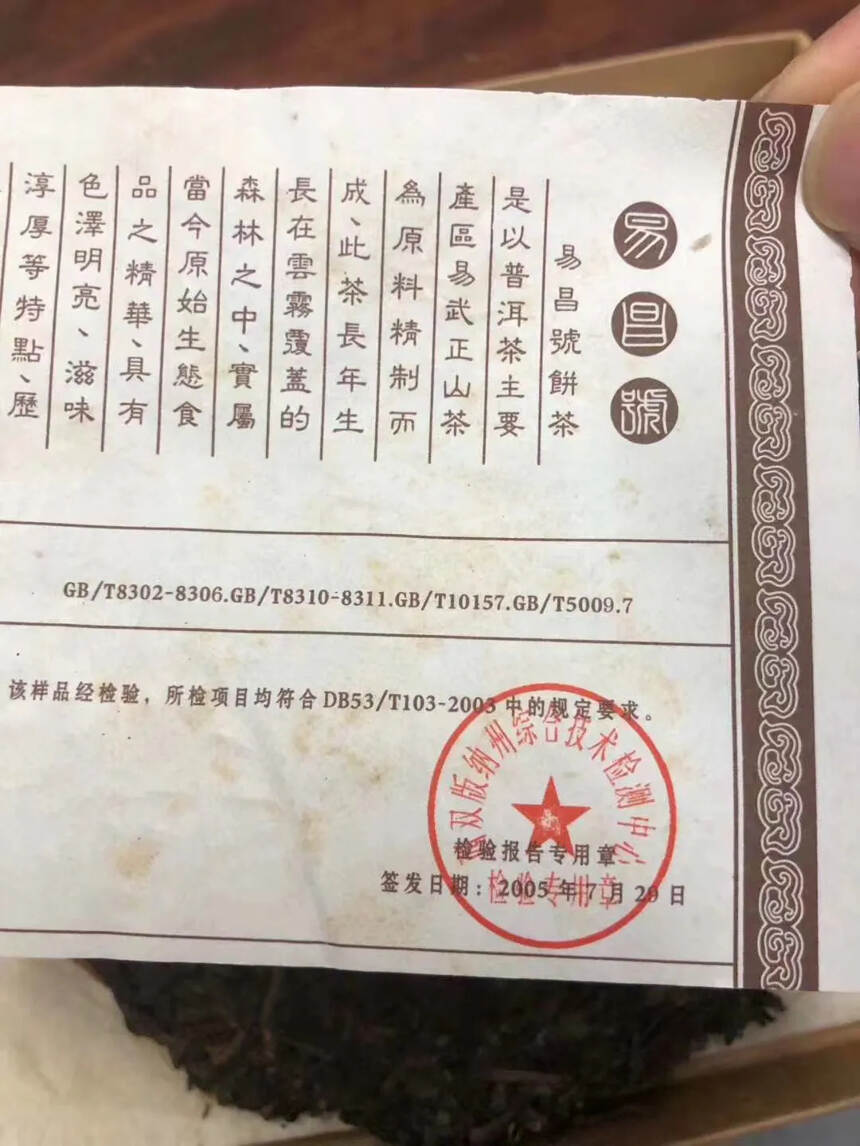 易昌號
易昌號餅茶
是以普洱茶主要
產區易武正山茶
為原料精制而
成、此茶長年生
長在雲霧覆蓋的
森林之中、實屬
當今原始生態食
品之精華、具有
色澤明亮、滋味
淳厚等特點、歷
GB/T8302-8306.GB/T8310-8311.GB/T10157.GB/T5009.7
该样品经检验，所检项目均符合DB53/T103-2003中的规定要求。
西双版纳州综合技术检测中心
检验报告专用章
检验专用章
签发日期：2005年7月29日